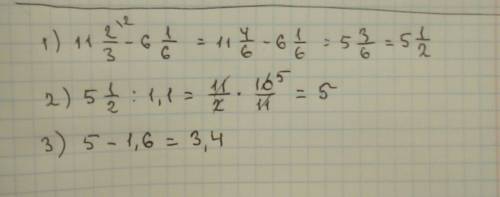 1) 11 2/3 \2 - 6 1/6 = 11 4/6 - 6 1/6 = 5 3/6 = 5 1/2
2) 5 1/2 : 1,1 = 11/2 · 10 5/11 = 5
3) 5 - 1,6 = 3,4